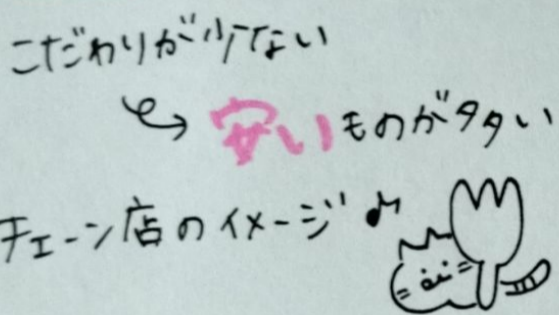 こだわりが少ない
安いものが多い
チェーン店のイメージ♪